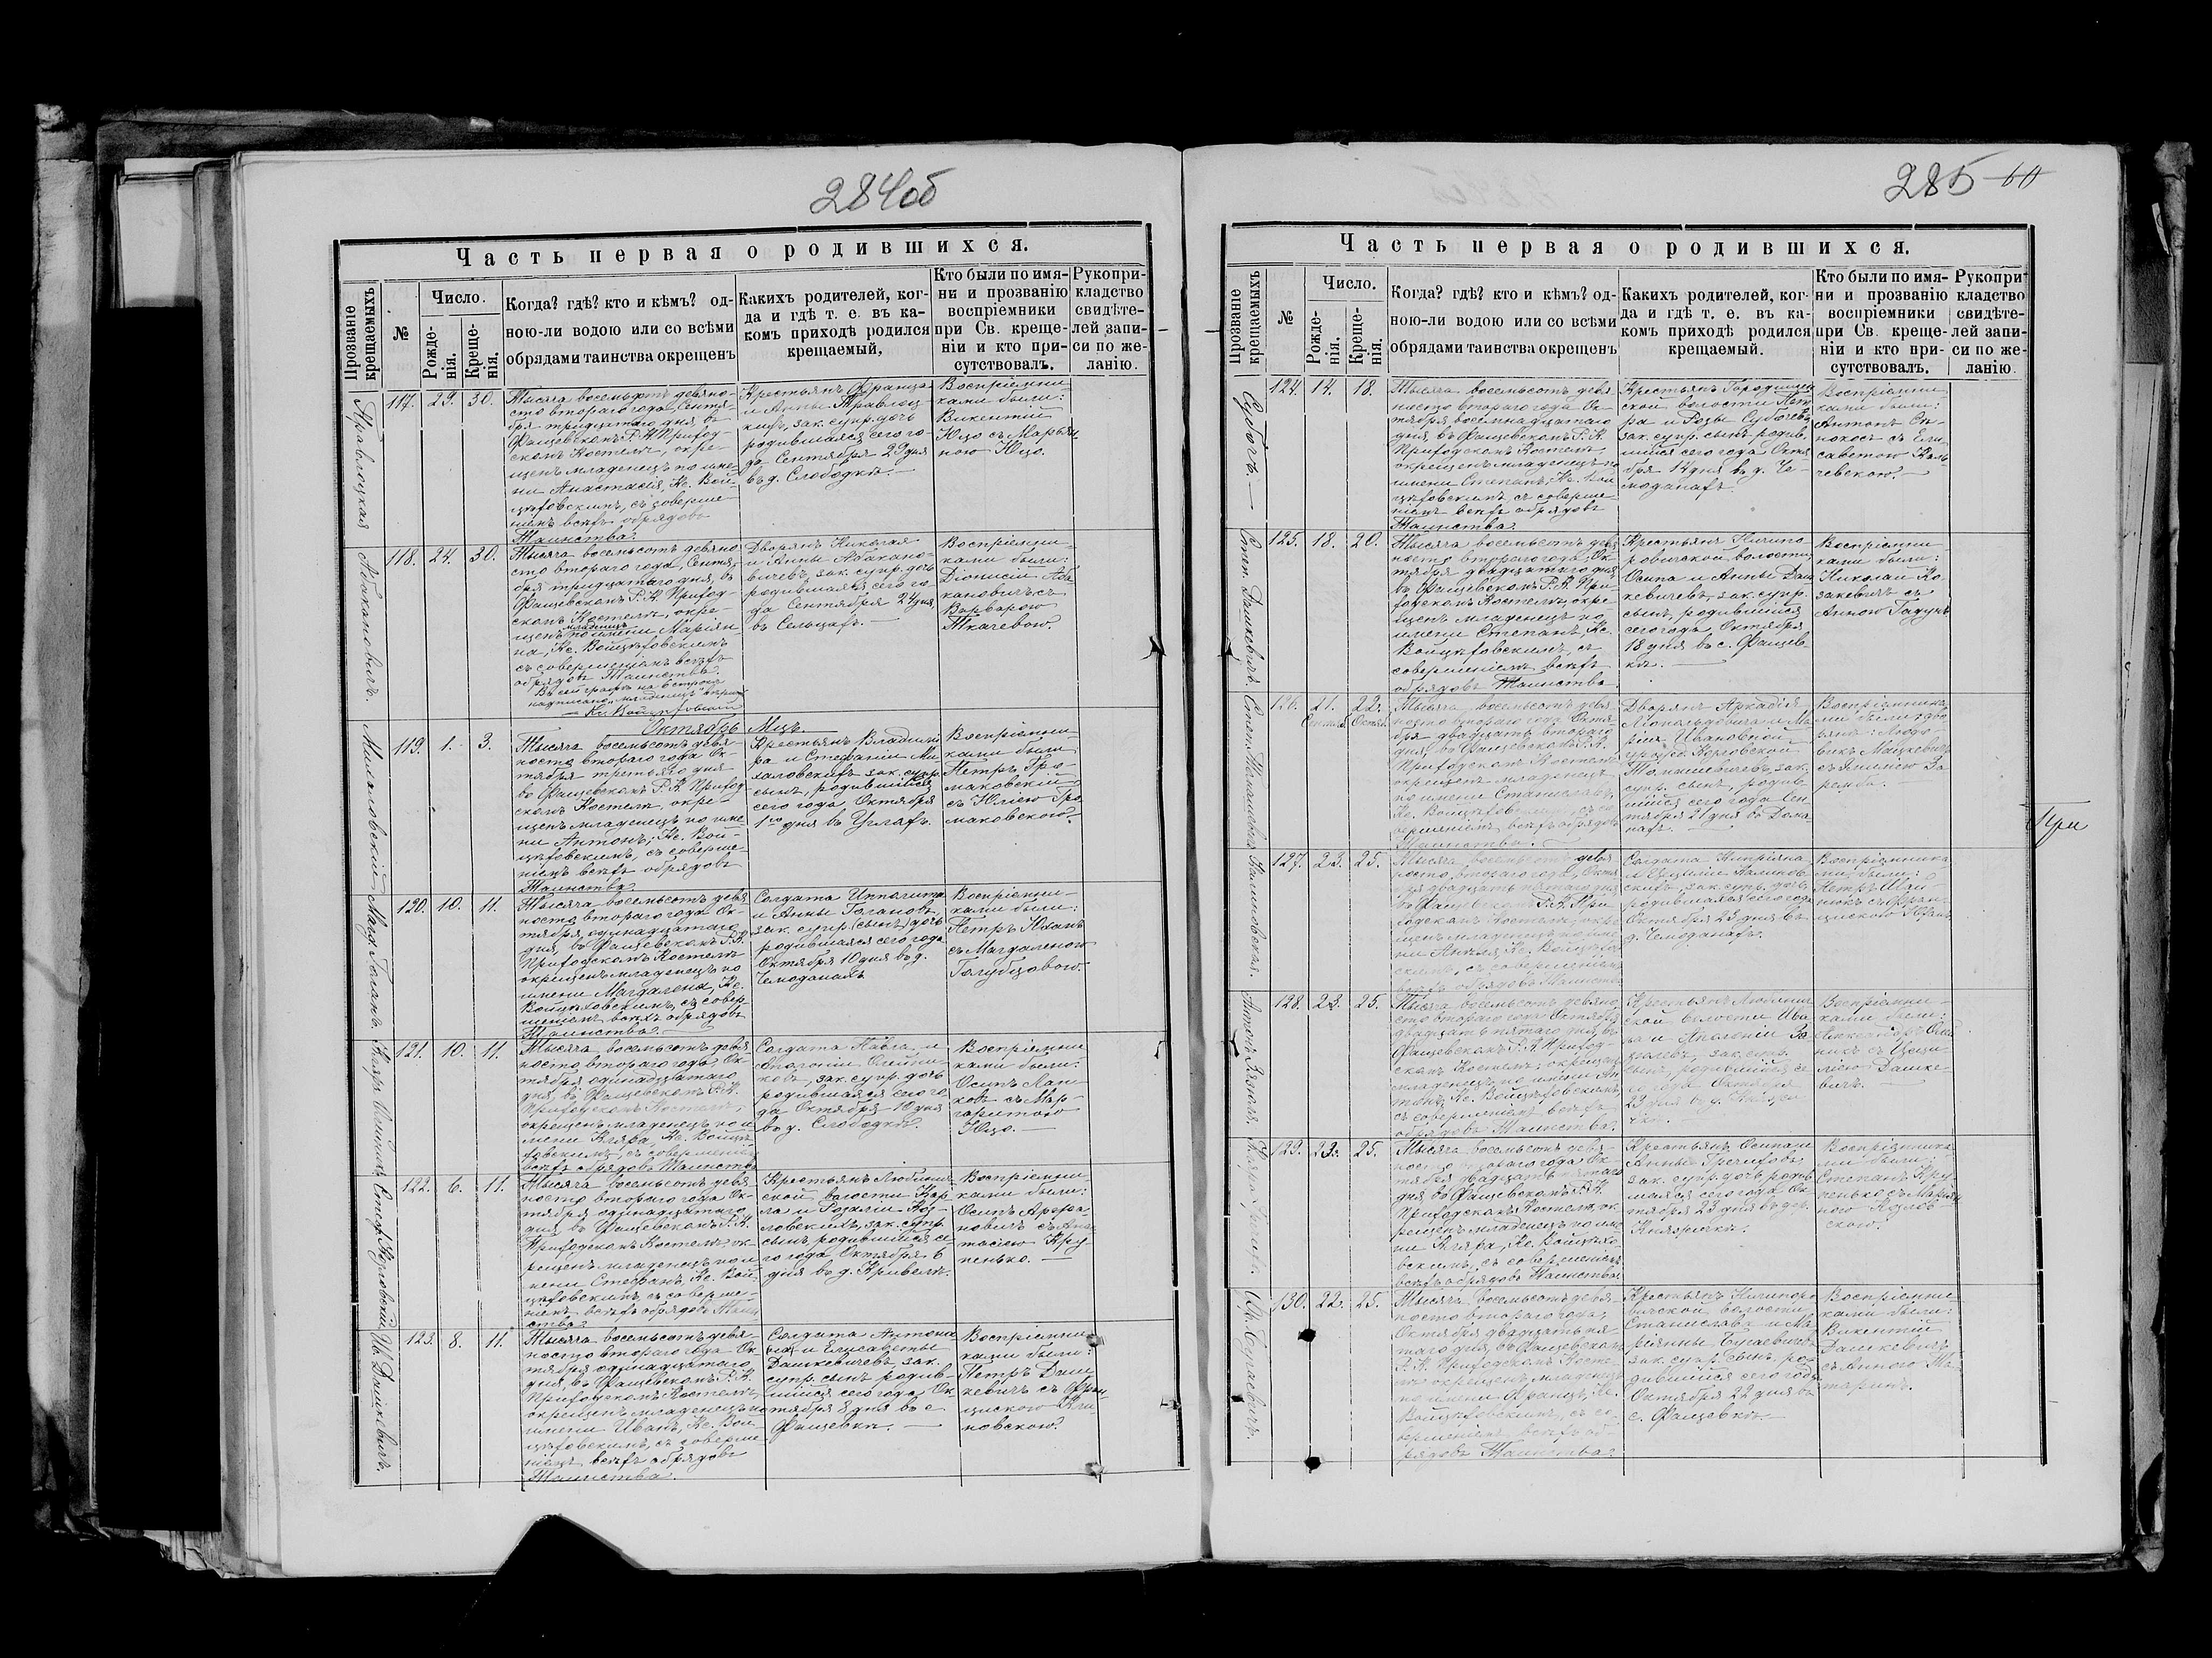 284об
Часть первая о родившихся.
Прозваніе крещаемыхъ
№
Число.
Рожде-
нія.
Креще-
нія.
Когда? гдѣ? кто и кѣмъ? од-
ною-ли водою или со всѣми
обрядами таинства окрещенъ
Какихъ родителей, ког-
да и гдѣ т. е. въ ка-
комъ приходѣ родился
крещаемый,
Кто были по имя-
ни и прозванію
воспріемники
при Св. креще-
ніи и кто при-
сутствовалъ.
Рукопри-
кладство
свидѣте-
лей запи-
си по же-
ланію.
117. 29. 30.
Тысяча восемьсотъ девяно-
сто втораго года, Сентя-
бря тридцатаго дня, въ
Фащевскомъ Р. К. Приход-
скомъ Костелѣ, окре-
щенъ младенецъ по име-
ни Анастасія, Кс. Вой-
цѣховскимъ, съ соверше-
ніемъ всѣхъ обрядовъ
Таинства.
Крестьянъ Франца
и Анны
зак. супр. дочь
родившаяся сего го-
да Сентября 29 дня
въ д. Слободкѣ.
Воспріемни-
ками были:
Викентій
Юцо съ Марья-
ною Юцо.
Абакановичъ.
118. 24. 30.
Тысяча восемьсотъ девяно-
сто втораго года, Сентя-
бря тридцатаго дня, въ
Фащевскомъ Р. К. Приход-
скомъ Костелѣ, окре-
младенецъ
щенъ по имени Маріян-
на, Кс. Войцѣховскимъ
съ совершеніемъ всѣхъ
обрядовъ Таинства.
Въ сей графѣ на 6 строкѣ
надписано „младенецъ" вѣрно
Кс. Войцѣховскій
Дворянъ Николая
и Анны Абакано-
вичевъ, зак. супр. дочь
родившаяся сего го-
да Сентября 24 дня,
въ Сельцахъ.
Воспріемни-
ками были:
Діонисій Аба-
кановичъ съ
Варварою
Ткачевою.
Октябрь Мцъ.
Михаловскій
119. 1. 3.
Тысяча восемьсотъ девя-
носто втораго года Ок-
тября третьяго дня
въ Фащевскомъ Р. К. Приход-
скомъ Костелѣ, окре-
щенъ младенецъ по име-
ни Антонъ, Кс. Вой-
цѣховскимъ, съ соверше-
ніемъ всѣхъ обрядовъ
Таинства.
Крестьянъ Владимі-
ра и Стефаніи Ми-
халовскихъ зак. супр.
сынъ, родившійся
сего года Октября
1го дня въ Углахъ.
Воспріемни-
ками были
Петръ Гро-
маковскій
съ Юліею Гро-
маковскою.
Магд. Гогановъ.
120. 10. 11.
Тысяча восемьсотъ девя-
носто втораго года Ок-
тября одинадцатаго
дня, въ Фащевскомъ Р. К.
Приходскомъ Костелѣ
окрещенъ младенецъ по
имени Магдалена, Кс.
Войцѣховскимъ, съ совер-
шеніемъ всѣхъ обрядовъ
Таинства.
Солдата Ипполита
и Анны Гогановъ,
зак. супр. (сынъ) дочь
родившаяся сего года
Октября 10 дня въ д.
Чемоданахъ
Воспріемни-
ками были:
Петръ Юханъ
съ Магдаленою
Голубцовою.
121. 10. 11.
Тысяча восемьсотъ девя-
носто втораго года, Ок-
тября одинадцатаго
дня, въ Фащевскомъ Р. К.
Приходскомъ Костелѣ,
окрещенъ младенецъ по и-
мени Кляра, Кс. Войцѣ-
ховскимъ, съ совершеніемъ
всѣхъ обрядовъ Таинства
Солдата Павла и
Аполоніи Олейни-
ковъ, зак. супр. дочь
родившаяся сего го-
да Октября 10 дня
въ д. Слободкѣ.
Воспріемни-
ками были:
Осипъ Лап-
ковъ съ Мар-
гаритою
Юцо.
Стеф. Козловскій
122. 6. 11.
Тысяча восемьсотъ девя-
носто втораго года Ок-
тября одинадцатаго
дня, въ Фащевскомъ Р. К.
Приходскомъ Костелѣ, ок-
рещенъ младенецъ по и-
мени Стефанъ, Кс. Вой-
цѣховскимъ, съ соверше-
ніемъ всѣхъ обрядовъ Таин-
ства.
Крестьянъ Любинич-
ской волости Кар-
ла и Розаліи Коз-
ловскихъ, зак. супр.
сынъ, родившійся се-
го года Октября 6
дня въ д. Кривель.
Воспріемни-
ками были:
Осипъ
новичъ съ Анас-
тасіею Кру-
пенько.
Ив. Дашкевичъ.
123. 8. 11.
Тысяча восемьсотъ девя-
носто втораго года Ок-
тября одинадцатаго
дня, въ Фащевскомъ Р. К.
Приходскомъ Костелѣ,
окрещенъ младенецъ по
имени Иванъ, Кс. Вой-
цѣховскимъ, съ соверше-
ніемъ всѣхъ обрядовъ
Таинства.
Солдата Антона
и Елисаветы
Дашкевичевъ, зак.
супр. сынъ родив-
шійся сего года Ок-
тября 8 дня въ с.
Фащевкѣ.
Воспріемни-
ками были:
Петръ Даш-
кевичъ съ Фран-
цискою
новскою.
285 60
Часть первая о родившихся.
Прозваніе крещаемыхъ
№
Число.
Рожде-
нія.
Креще-
нія.
Когда? гдѣ? кто и кѣмъ? од-
ною-ли водою или со всѣми
обрядами таинства окрещенъ
Какихъ родителей, ког-
да и гдѣ т. е. въ ка-
комъ приходѣ родился
крещаемый.
Кто были по имя-
ни и прозванію
воспріемники
при Св. креще-
ніи и кто при-
сутствовалъ.
Рукопри-
кладство
свидѣте-
лей запи-
си по же-
ланію.
Суботъ.
124. 14. 18.
Тысяча восемьсотъ девя-
носто втораго года Ок-
тября восемнадцатаго
дня, въ Фащевскомъ Р. К.
Приходскомъ Костелѣ
окрещенъ младенецъ по
имени Степанъ, Кс. Вой-
цѣховскимъ, съ соверше-
ніемъ всѣхъ обрядовъ
Таинства.
Крестьянъ Городищен-
ской волости Пет-
ра и Розы Суботовъ
зак. супр. сынъ родив-
шійся сего года Октя-
бря 14 дня въ д. Че-
моданахъ.
Воспріемни-
ками были:
Антонъ Си-
нокосъ съ Ели-
саветою
чевскою.
Степ. Дашкевичъ.
125. 18. 20.
Тысяча восемьсотъ девя-
носто втораго года Ок-
тября двадцатаго дня
въ Фащевскомъ Р. К. При-
ходскомъ Костелѣ, окре-
щенъ младенецъ по
имени Степанъ, Кс.
Войцѣховскимъ, съ
совершеніемъ всѣхъ
обрядовъ Таинства.
Крестьянъ
волости
Осипа и Анны Даш-
кевичевъ, зак. супр.
сынъ, родившійся
сего года Октября
18 дня въ с. Фащев-
кѣ.
Воспріемни-
ками были:
Николай Ко-
закевичъ съ
Анною
126. 21. 22.
Сентяб. Октяб.
Тысяча восемьсотъ девя-
носто втораго года Октя-
бря двадцать втораго
дня, въ Фащевскомъ Р. К.
Приходскомъ Костелѣ
окрещенъ младенецъ
по имени Станиславъ,
Кс. Войцѣховскимъ, съ со-
вершеніемъ всѣхъ обрядовъ
Таинства.
Дворянъ Аркадія
Леопольдовича и Ма-
ріи Ивановной
урожд. Козловской
Томашевичевъ, зак.
супр. сынъ, родив-
шійся сего года Сен-
тября 21 дня въ Дома-
нахъ.
Воспріемника-
ми были дво-
ряне: Людо-
викъ Мацкевичъ
съ Эмиліею За-
рембо.
127. 23. 25.
Тысяча восемьсотъ девя-
носто втораго года, Октя-
бря двадцать пятаго дня
въ Фащевскомъ Р. К. При-
ходскомъ Костелѣ, окре-
щенъ младенецъ по име-
ни Анеля, Кс. Войцѣхов-
скимъ, съ совершеніемъ
всѣхъ обрядовъ Таинства
Солдата Кипріяна
и Цециліи Калинов-
скихъ, зак. супр. дочь
родившаяся сего года
Октября 23 дня въ
д. Чемоданахъ.
Воспріемника-
ми были:
Петръ
съ Фран-
цискою Юхан.
128. 23. 25.
Тысяча восемьсотъ девяно-
сто втораго года Октября
двадцать пятаго дня, въ
Фащевскомъ Р. К. Приход-
скомъ Костелѣ, окрещенъ
младенецъ по имени Ан-
тонъ, Кс. Войцѣховскимъ,
съ совершеніемъ всѣхъ
обрядовъ Таинства.
Крестьянъ Любинич-
ской волости Ива-
на и Аполоніи
зак. супр.
сынъ, родившійся се-
го года Октября
23 дня въ д.
Воспріемни-
ками были:
Александръ
съ Цеци-
ліею Дашке-
вичъ.
129. 23. 25.
Тысяча восемьсотъ девя-
носто втораго года Ок-
тября двадцать пятаго
дня въ Фащевскомъ Р. К.
Приходскомъ Костелѣ, ок-
рещенъ младенецъ по име-
ни Кляра, Кс. Войцѣхо-
вскимъ, съ совершеніемъ
всѣхъ обрядовъ Таинства
Крестьянъ Осипа и
Анны
зак. супр. дочь родив-
шаяся сего года Ок-
тября 23 дня въ дер.
Княжицы.
Воспріемника-
ми были:
Степанъ Кру-
пенько съ Марья-
ною Козлов-
скою.
130. 22. 25.
Тысяча восемьсотъ девя-
носто втораго года,
Октября двадцать пя-
таго дня, въ Фащевскомъ
Р. К. Приходскомъ Косте-
лѣ окрещенъ младенецъ
по имени Францъ, Кс.
Войцѣховскимъ, съ со-
вершеніемъ всѣхъ об-
рядовъ Таинства.
Крестьянъ
волости
Станислава и Ма-
ріянны
зак. супр. сынъ, ро-
дившійся сего года
Октября 22 дня въ
с. Фащевкѣ.
Воспріемни-
ками были:
Викентій
Дашкевичъ
съ Анною